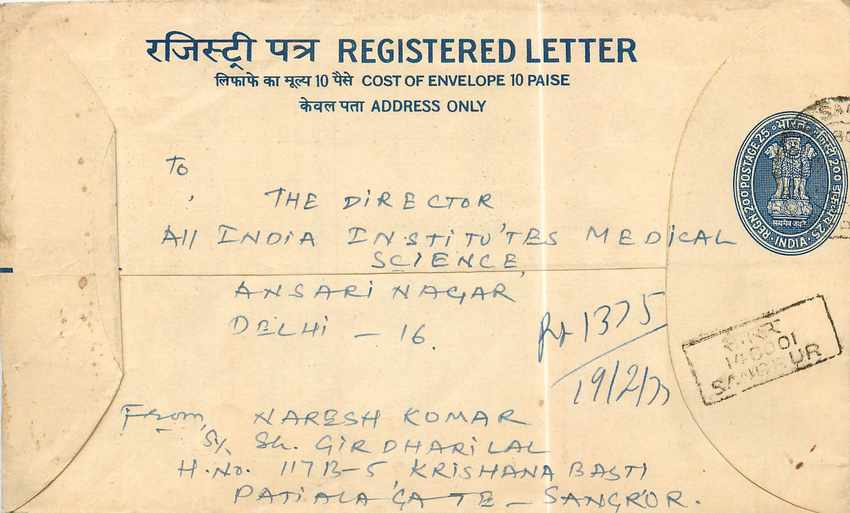 रजिस्ट्री पत्र REGISTERED LETTER
लिफाफे का मूल्य 10 पैसे COST OF ENVELOPE 10 PAISE
केवल पता ADDRESS ONLY
REGN 200 POSTAGE 25 भारत रजिस्ट्री 200
सत्यमेव जयते
INDIA
To
THE DIRECTOR
All INDIA INSTITU'TES MEDICAL
SCIENCE,
ANSARI NAGAR,
DELHI - 16.
1375
19/2/77
SANGRUR
From,
NARESH KUMAR
S/o Sh. GIRDHARI LAL
H.No. 117B-5, KRISHANA BASTI
PATIALA GATE - SANGROR.